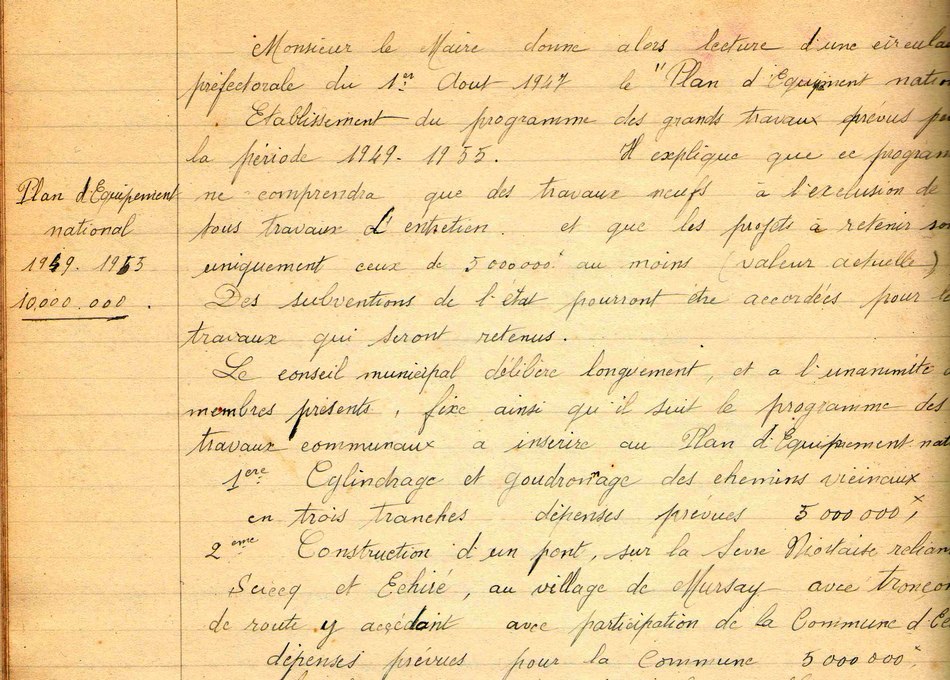 Monsieur le Maire donne alors lecture d'une circula
préfectorale du 1er Aout 1947 le "Plan d'Equipment natio
Etablissement du programme des grands travaux prévus pou
la période 1949-1953. Il explique que ce program
Plan d'Equipement
national
1949-1953
10.000.000.
ne comprendra que des travaux neufs à l'exclusion de
tous travaux d'entretien. et que les projets à retenir son
uniquement ceux de 5 000 000f au moins (valeur actuelle)
Des subventions de l'état pourront être accordées pour le
travaux qui seront retenus.
Le conseil municipal délibère longuement, et a l'unanimité
membres présents, fixe ainsi qu'il suit le programme des
travaux communaux a inscrire au Plan d'Equipement nat
1ere Cylindrage et goudronnage des chemins vicinaux
en trois tranches dépenses prévues 5 000 000f
2eme Construction d'un pont, sur la Sevre Niortaise relian
Sciecq et Echiré, au village de Mursay avec tronçon
de route y accédant avec participation de la Commune d'Ec
dépenses prévues pour la Commune 5 000 000f